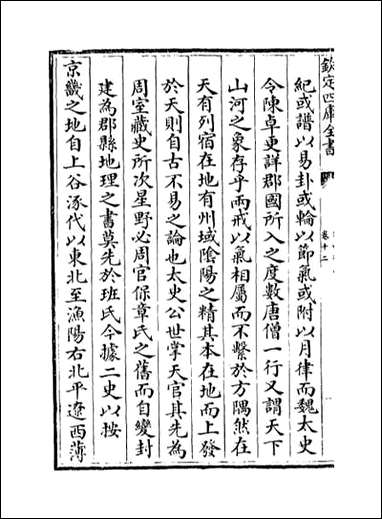 欽定四庫全書
卷十二
紀或譜以易卦或輪以節氣或附以月律而魏太史
令陳卓更詳郡國所入之度數唐僧一行又謂天下
山河之象存乎兩戒以氣相屬而不繫於方隅然在
天有列宿在地有州域陰陽之精其本在地而上發
於天則自古不易之論也太史公世掌天官其先為
周室藏史所次星野必周官保章氏之舊而自變封
建為郡縣地理之書莫先於班氏今據二史以按
京畿之地自上谷涿代以東北至漁陽右北平遼西薄